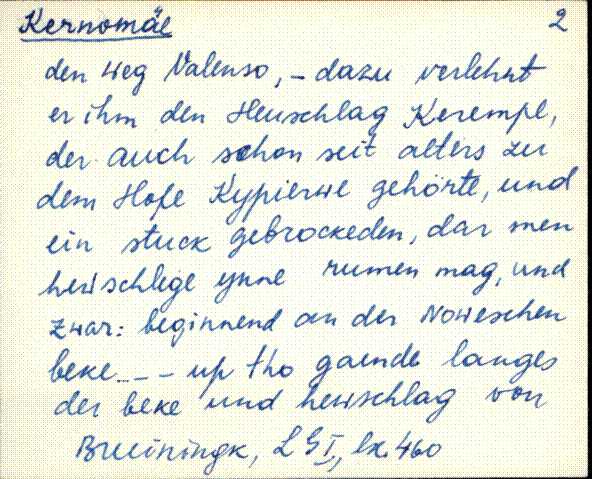 Kernomäe 2
den weg Valenso, – dazu verlehnt
er ihm den Heuschlag Kerempe,
der auch schon seit alters zu
dem Hofe Kypierwe gehörte, und
ein stuck gebrockeden, dar men
hewschlege ynne rumen mag, und
zwar: beginnend an der Noweschen
beke --- up tho gaende langes
der beke und hewschlag von
Bruiningk, LG I, lk. 460